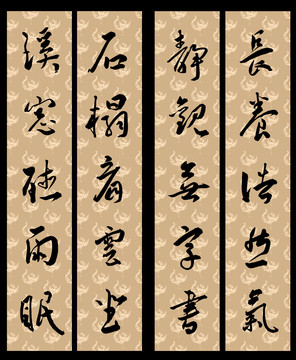 長養浩然氣
靜觀無字書
石榻看雲坐
溪窗聽雨眠